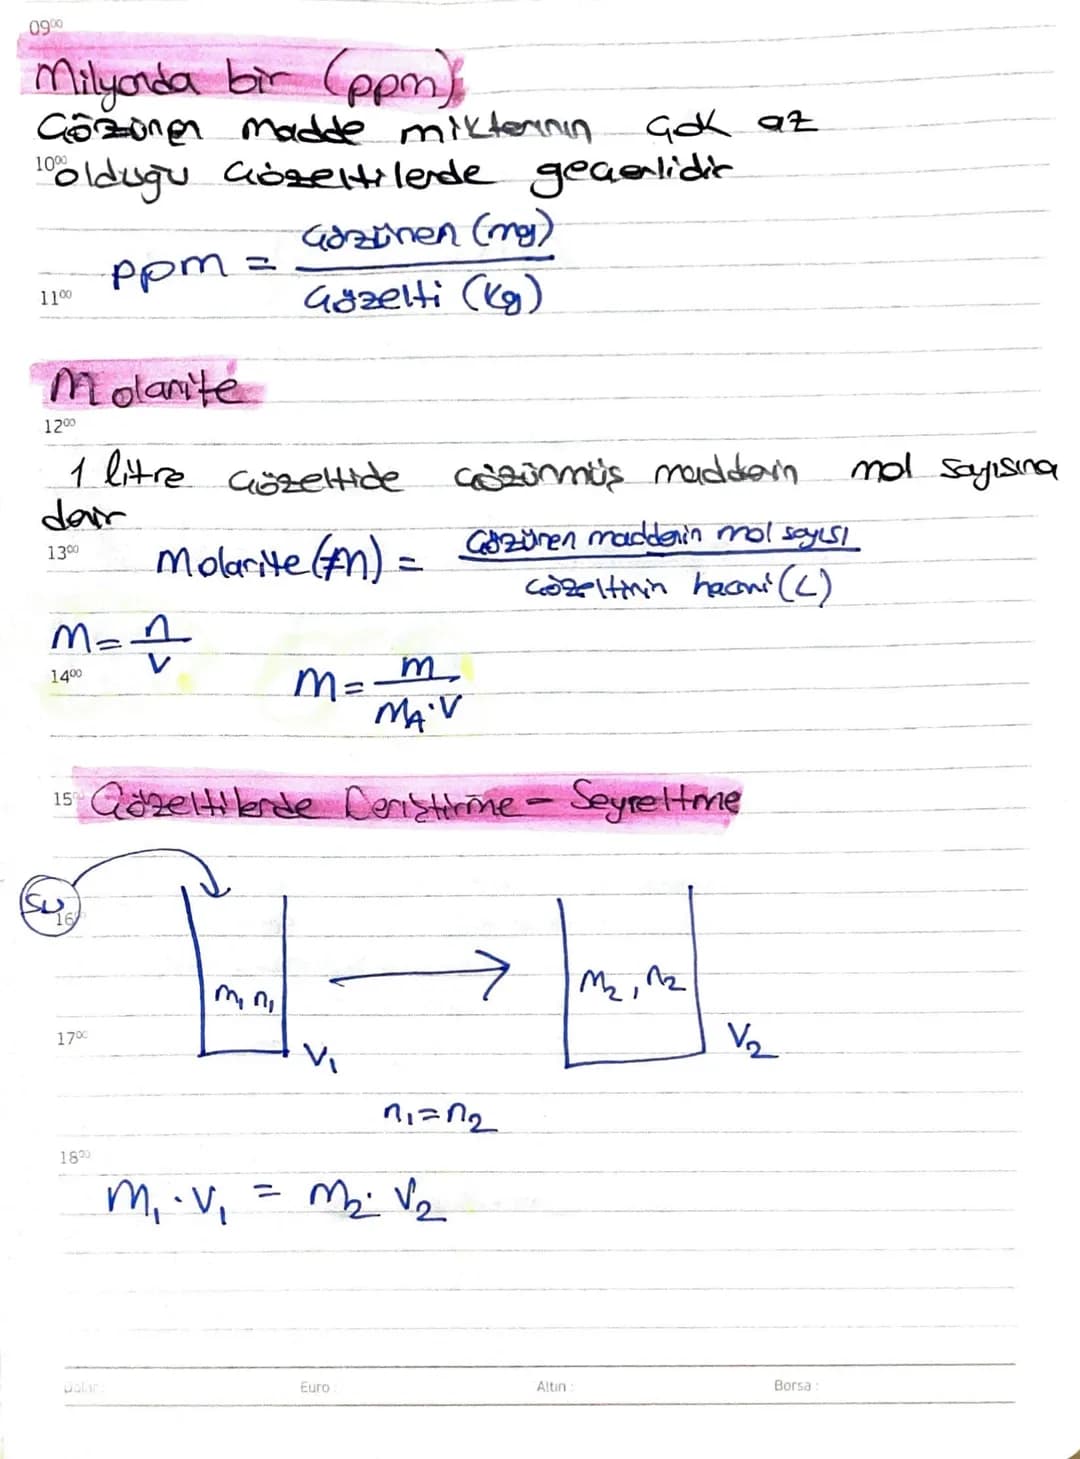 09⁰⁰
Milyonda bir (ppm);
Çözünen madde miktarının çok az
10⁰⁰
olduğu çözeltilerde geçerlidir
ppm = Çözünen (mg) / Çözelti (kg)
11⁰⁰
Molarite
12⁰⁰
1 litre çözeltide çözünmüş maddenin mol sayısına
denir
13⁰⁰
Molarite (M) = Çözünen maddenin mol sayısı / çözeltinin hacmi (L)
M = n / V
14⁰⁰
M = m / MA·V
15⁰⁰
Çözeltilerde Deriştirme - Seyreltme
Su
16⁰⁰
M₁ n₁
M₂, n₂
17⁰⁰
V₁
V₂
n₁ = n₂
18⁰⁰
M₁ · V₁ = M₂ · V₂
Dolar :
Euro :
Altın :
Borsa :